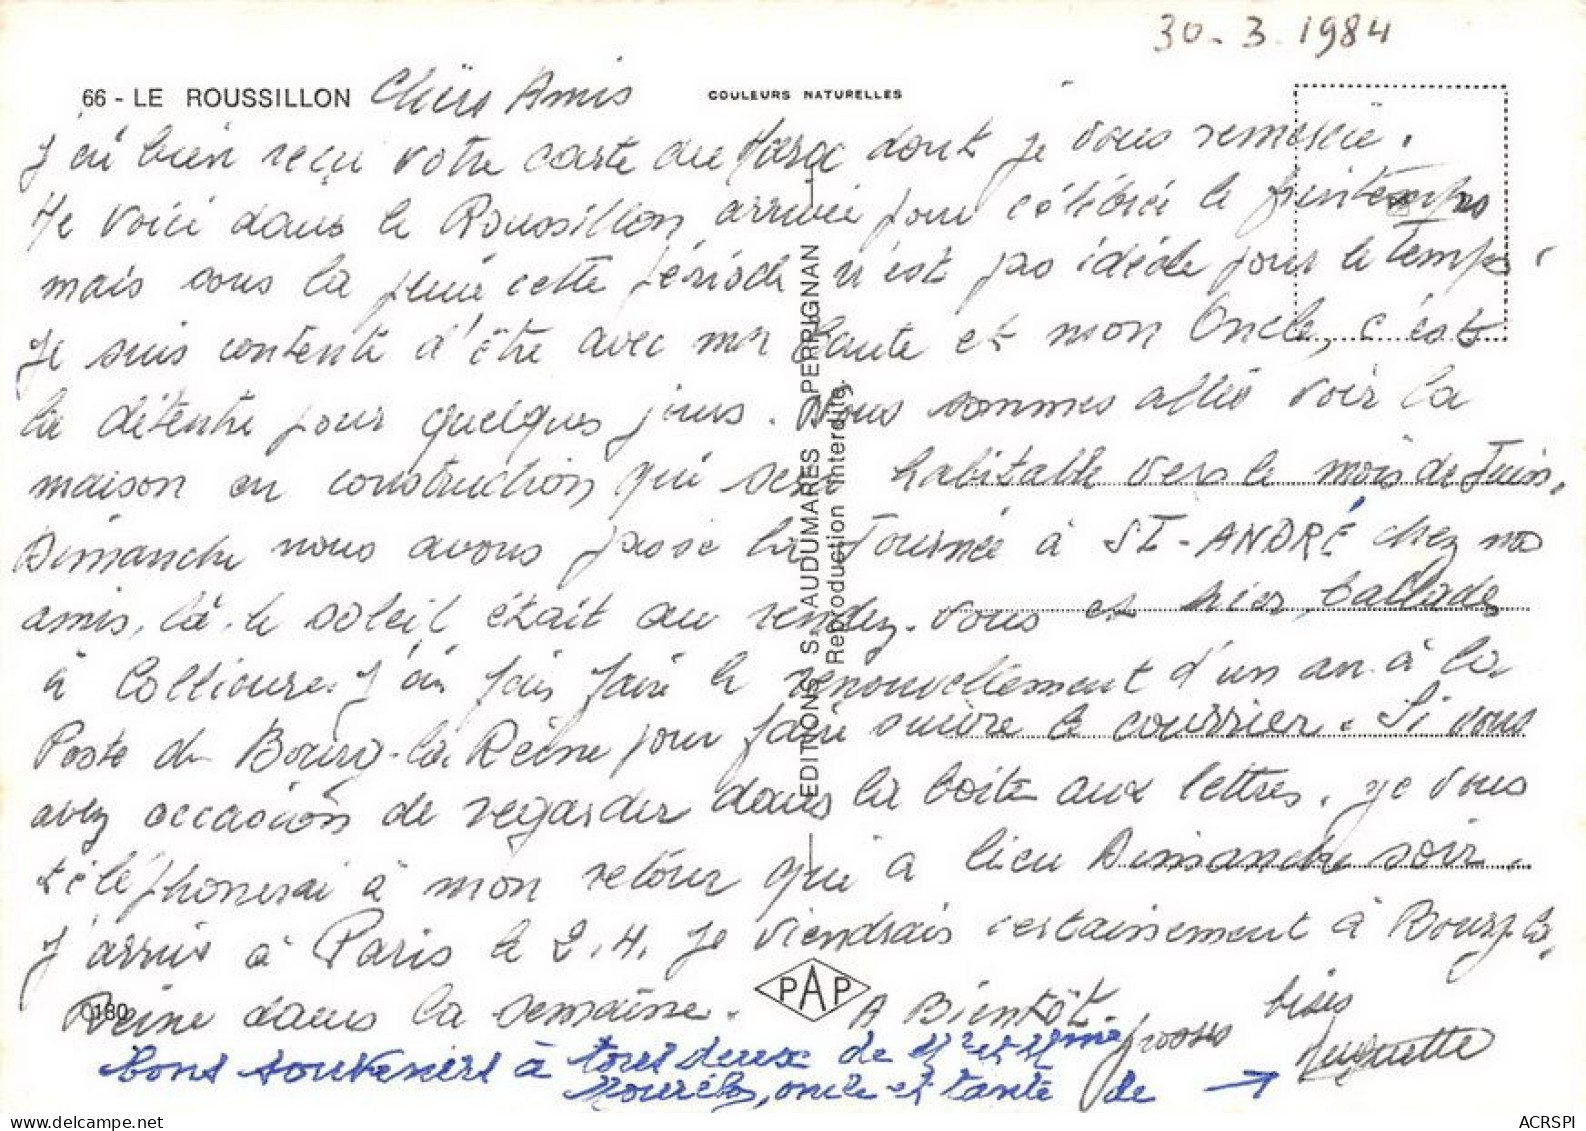 30-3-1984
66 - LE ROUSSILLON Chers Amis COULEURS NATURELLES
J'ai bien reçu votre carte du Maroc dont je vous remercie.
Me voici dans le Roussillon arrivée pour célébrer le printemps
mais sous la pluie cette période n'est pas idéale pour le temps.
Je suis contente d'être avec ma Tante et mon Oncle, c'est
la détente pour quelques jours. Nous sommes allés voir la
maison en construction qui sera habitable vers le mois de Juin.
Dimanche nous avons passé la Journée à ST-ANDRÉ chez nos
amis, là le soleil était au rendez-vous et hier, ballade
à Collioure. J'ai fait faire le renouvellement d'un an à la
Poste de Bourg-la-Reine pour faire suivre le courrier. Si vous
avez occasion de regarder dans la boite aux lettres. Je vous
téléphonerai à mon retour qui a lieu Dimanche soir.
J'arrive à Paris le 2.4. Je viendrais certainement à Bourg-la
Reine dans la semaine. A Bientôt.
Grosses bises
bons souvenirs à tous deux de Mr et Mme
oncle et tante de →
EDITIONS S. AUDUMARES PERPIGNAN
Reproduction interdite
PAP
0180
ACRSPI